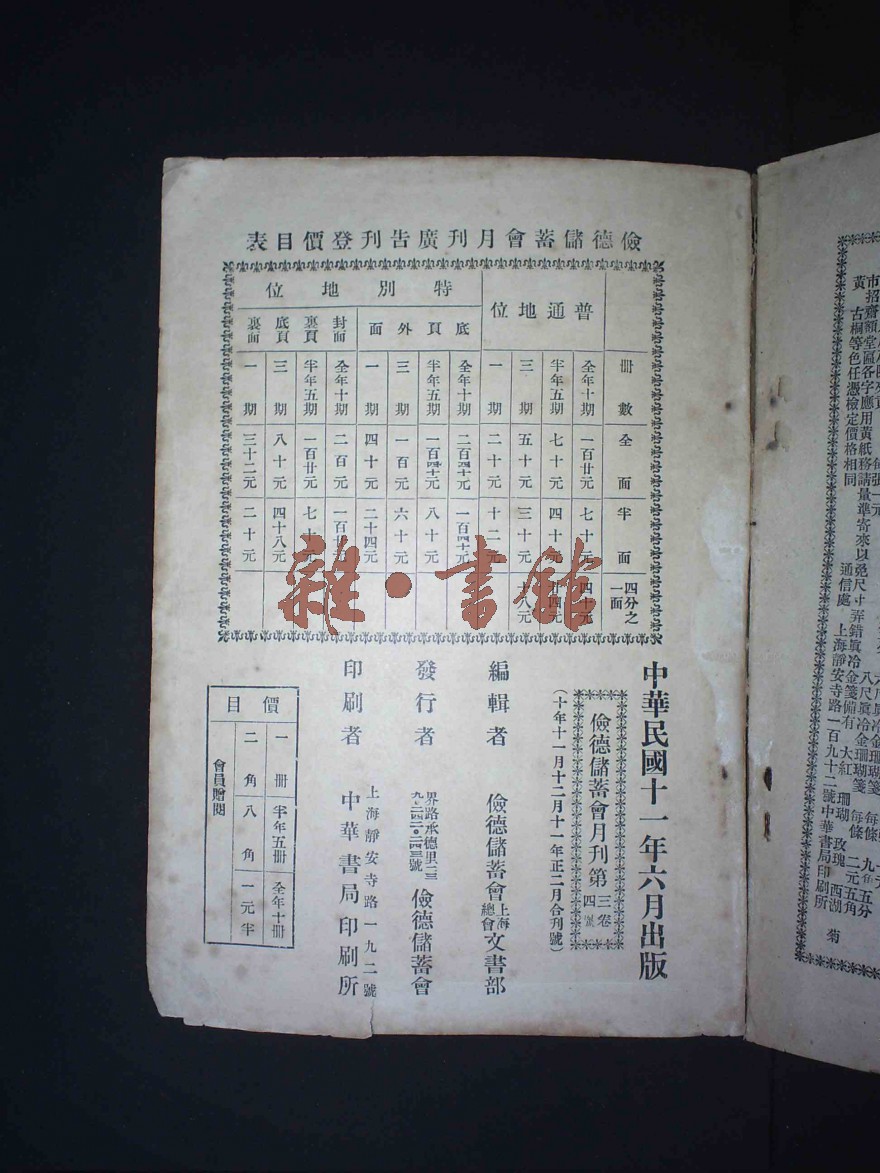 儉德儲蓄會月刊廣告刊登價目表
冊數 全面 半面 四分之一面
普通地位
全年十期 一百廿元 七十元 四十元
半年五期 七十元 四十元 廿四元
三期 五十元 三十元 十八元
一期 二十元 十二元
特別地位
底頁外面
全年十期 二百四十元 一百四十元
半年五期 一百四十元 八十元
三期 一百元 六十元
一期 四十元 二十四元
封面裏頁 底頁裏面
全年十期 二百元
半年五期 一百廿元 七十元
三期 八十元 四十八元
一期 三十二元 二十元
中華民國十一年六月出版
儉德儲蓄會月刊第三卷四號
(十年十一月十二月十一年正二月合刊號)
編輯者 儉德儲蓄會上海總會文書部
發行者 界路承德里 儉德儲蓄會
印刷者 上海靜安寺路一九二號 中華書局印刷所
價目
一冊 半年五冊 全年十冊
二角 八角 一元半
會員贈閱
雜·書館
古銅等色任憑檢定價格相同
通信處 上海靜安寺路一百九十二號中華書局印刷所